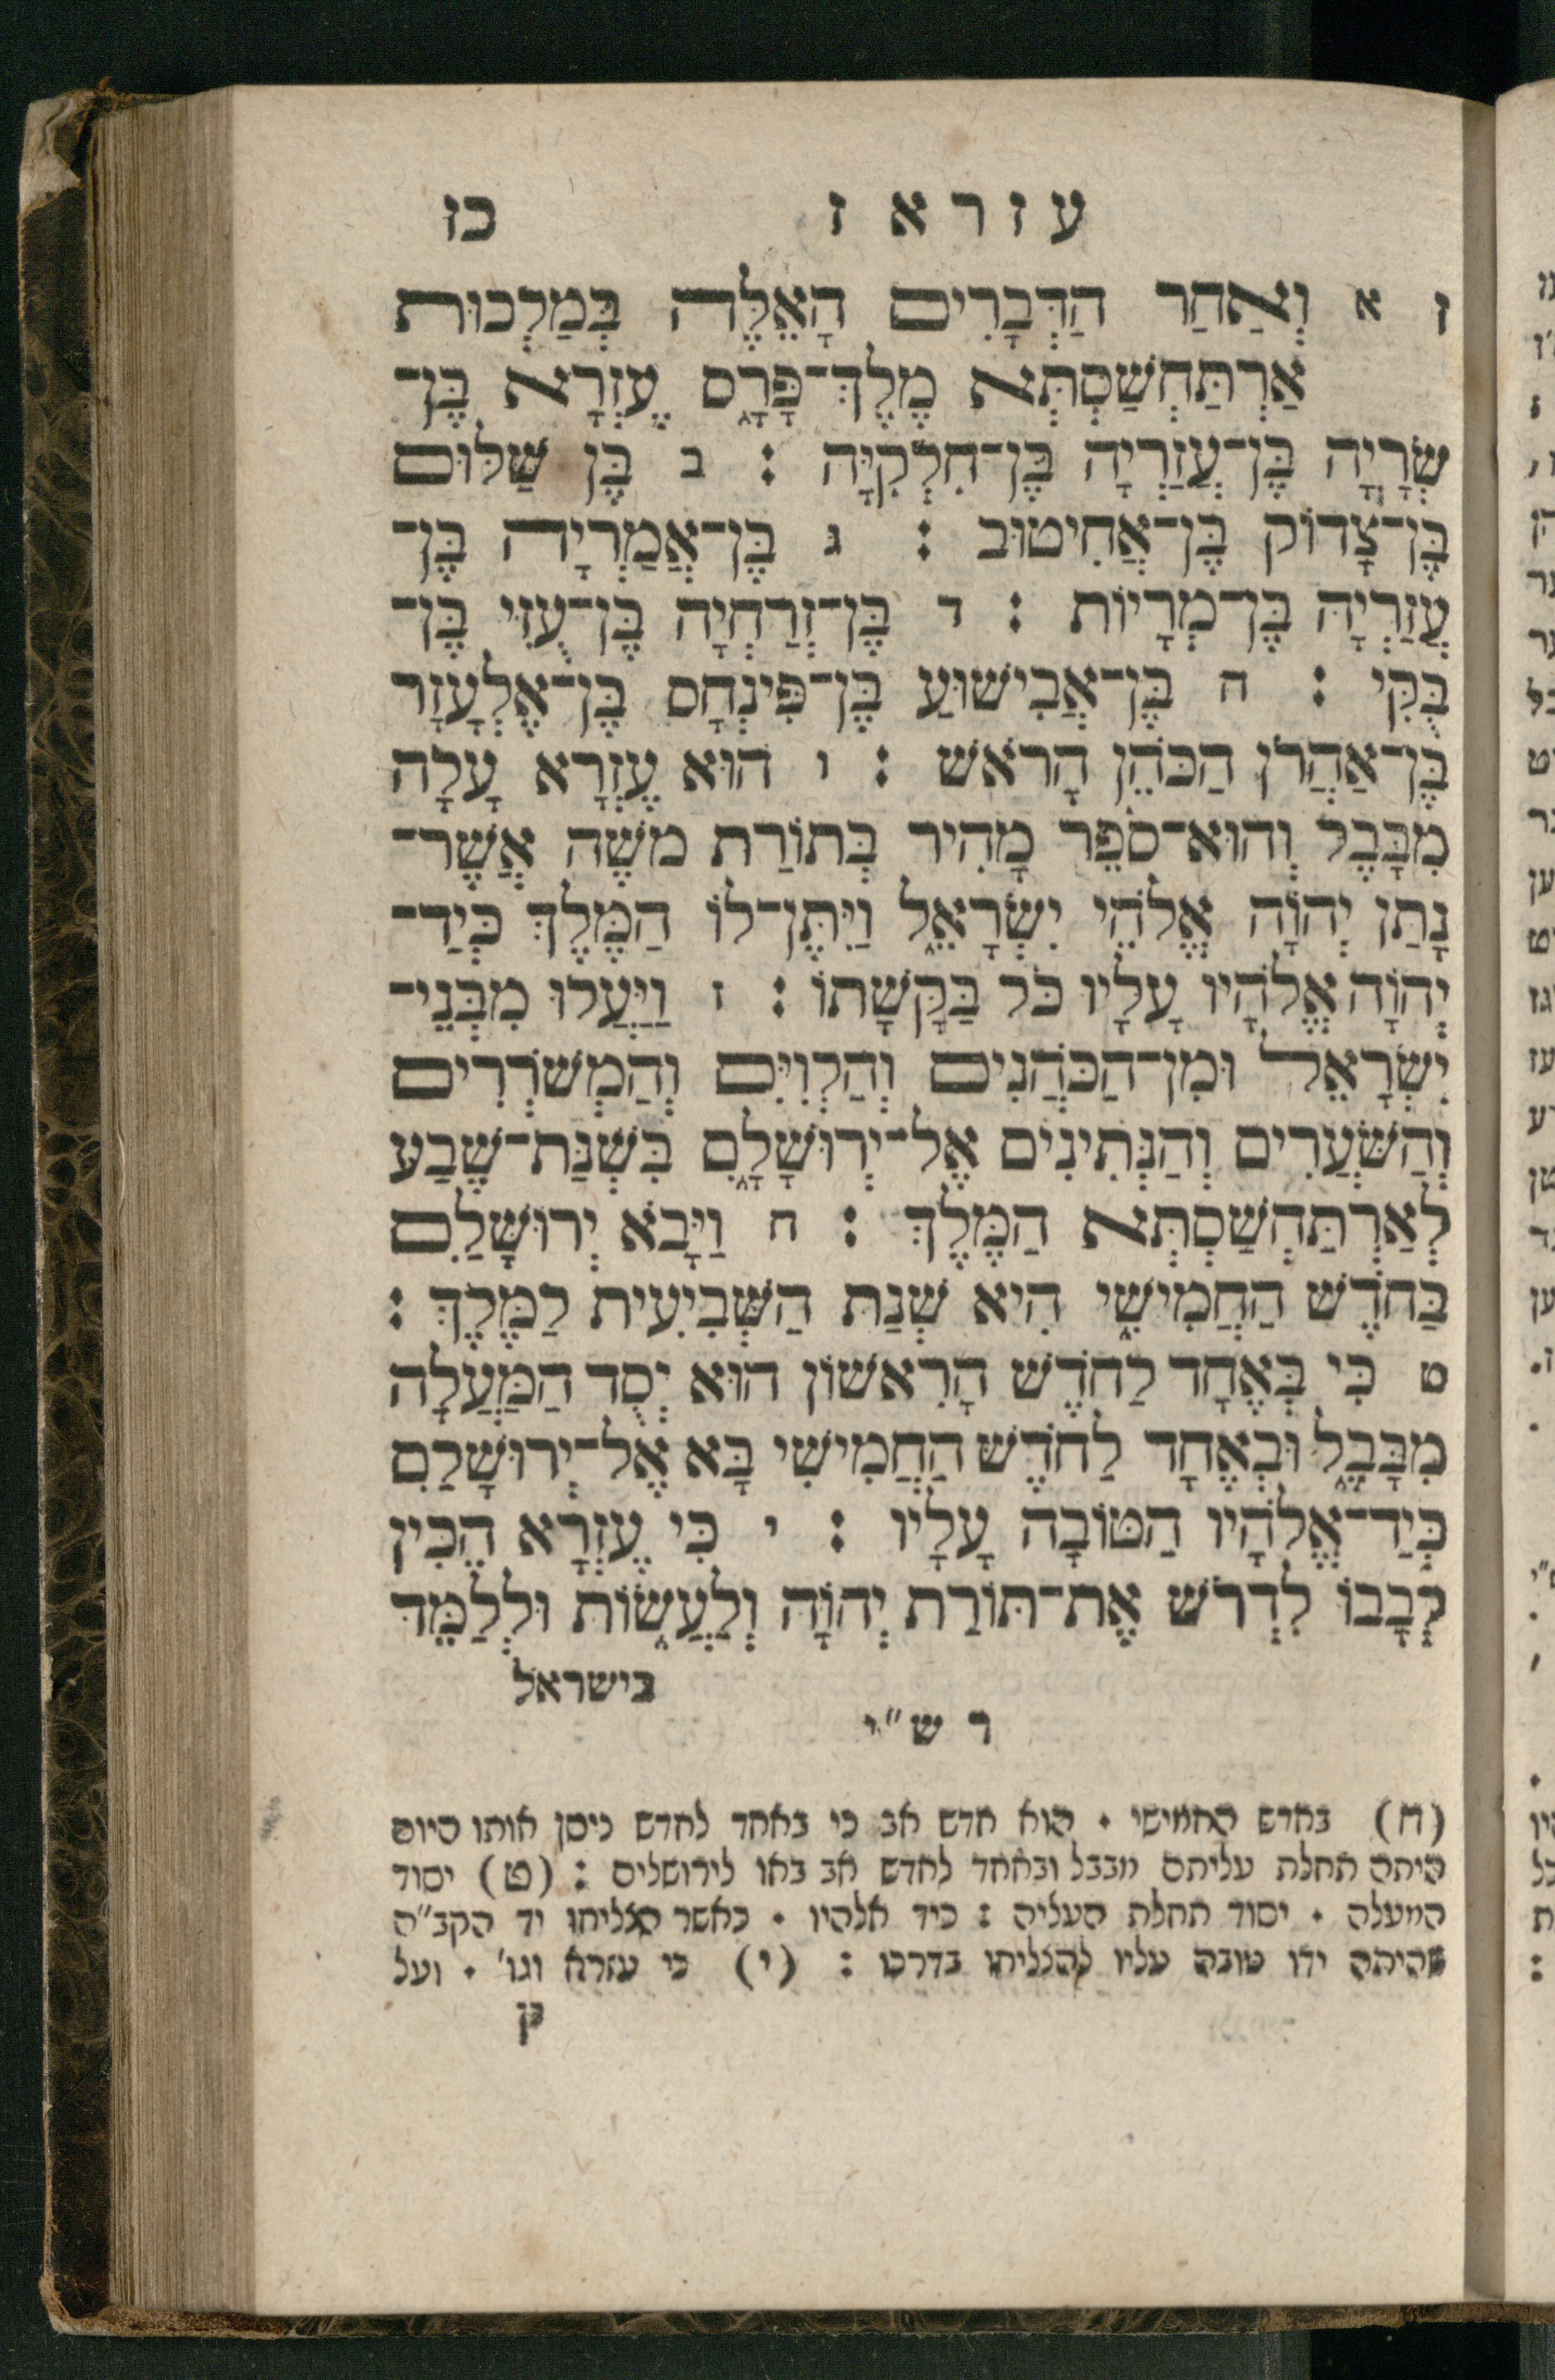 עזרא ז כז
ז א וְאַחַר הַדְּבָרִים הָאֵלֶּה בְּמַלְכוּת
אַרְתַּחְשַׁסְתְּא מֶלֶךְ־פָּרָס עֶזְרָא בֶּן־
שְׂרָיָה בֶּן־עֲזַרְיָה בֶּן־חִלְקִיָּה : ב בֶּן שַׁלּוּם
בֶּן־צָדוֹק בֶּן־אֲחִיטוּב : ג בֶּן־אֲמַרְיָה בֶּן־
עֲזַרְיָה בֶּן־מְרָיוֹת : ד בֶּן־זְרַחְיָה בֶּן־עֻזִּי בֶּן־
בֻּקִּי : ה בֶּן־אֲבִישׁוּעַ בֶּן־פִּינְחָס בֶּן־אֶלְעָזָר
בֶּן־אַהֲרֹן הַכֹּהֵן הָרֹאשׁ : ו הוּא עֶזְרָא עָלָה
מִבָּבֶל וְהוּא־סֹפֵר מָהִיר בְּתוֹרַת משֶׁה אֲשֶׁר־
נָתַן יְהוָֹה אֱלֹהֵי יִשְׂרָאֵל וַיִּתֶּן־לוֹ הַמֶּלֶךְ כְּיַד־
יְהוָֹה אֱלֹהָיו עָלָיו כֹּל בַּקָּשָׁתוֹ : ז וַיַּעֲלוּ מִבְּנֵי־
יִשְׂרָאֵל וּמִן־הַכֹּהֲנִים וְהַלְוִיִּם וְהַמְשֹׁרְרִים
וְהַשֹּׁעֲרִים וְהַנְּתִינִים אֶל־יְרוּשָׁלָםִ בִּשְׁנַת־שֶׁבַע
לְאַרְתַּחְשַׁסְתְּא הַמֶּלֶךְ : ח וַיָּבֹא יְרוּשָׁלִַם
בַּחֹדֶשׁ הַחֲמִישִׁי הִיא שְׁנַת הַשְּׁבִיעִית לַמֶּלֶךְ :
ט כִּי בְּאֶחָד לַחֹדֶשׁ הָרִאשׁוֹן הוּא יְסֻד הַמַּעֲלָה
מִבָּבֶל וּבְאֶחָד לַחֹדֶשׁ הַחֲמִישִׁי בָּא אֶל־יְרוּשָׁלִַם
כְּיַד־אֱלֹהָיו הַטּוֹבָה עָלָיו : י כִּי עֶזְרָא הֵכִין
לְבָבוֹ לִדְרֹשׁ אֶת־תּוֹרַת יְהוָֹה וְלַעֲשׂוֹת וּלְלַמֵּד
בישראל
רש״י
(ח) בחדש החמישי • הוא חדש אב כי באחד לחדש ניסן אותו היום
היתה תחלת עליתם מבבל ובאחד לחדש אב באו לירושלים : (ט) יסוד
המעלה • יסוד תחלת העליה : כיד אלהיו • כאשר הצליחו יד הקב״ה
שהיתה ידו טובה עליו להצליחו בדרכו : (י) כי עזרא וגו׳ • ועל
כן